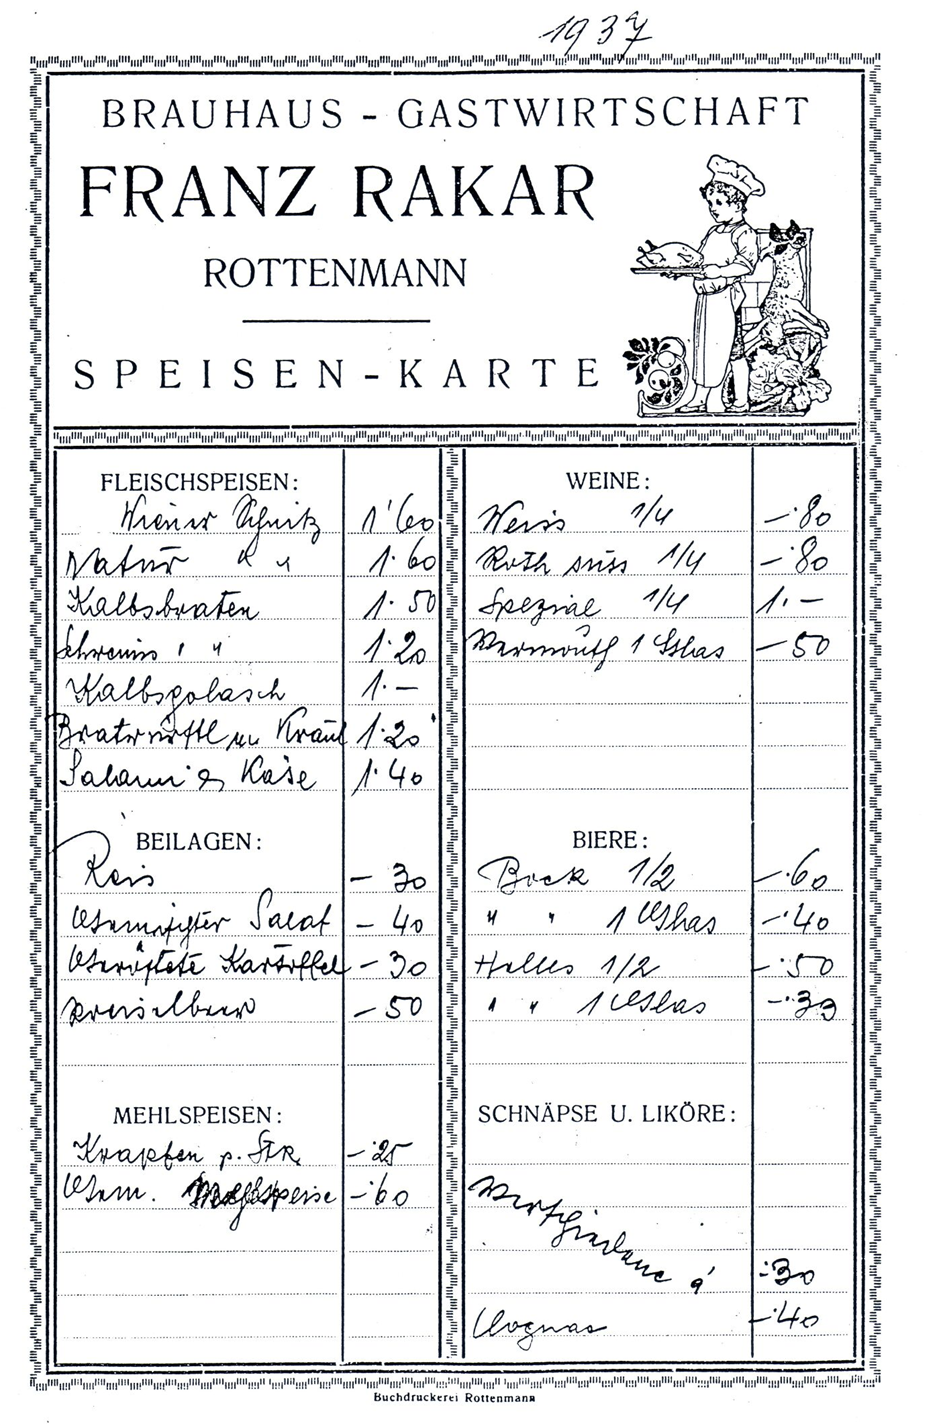 1937
BRAUHAUS - GASTWIRTSCHAFT
FRANZ RAKAR
ROTTENMANN
SPEISEN-KARTE
FLEISCHSPEISEN:
Wiener Schnitz 1'60
Natur " " 1.60
Kalbsbraten 1.50
Schweins " " 1.20
Kalbsgolasch 1.—
Bratwürstl m Kraut 1.20
Salami & Käse 1.40
BEILAGEN:
Reis — 30
Gemischter Salat — 40
Geröstete Kartoffel — 30
Preiselbeer — 50
MEHLSPEISEN:
Krapfen p. Stk. —.25
Gem. Mehlspeise —.60
WEINE:
Weiss 1/4 —.80
Roth süss 1/4 —.80
Spezial 1/4 1.—
Wermouth 1 Glas — 50
BIERE:
Bock 1/2 —.60
" " 1 Glas —.40
Helles 1/2 —.50
" " 1 Glas —.33
SCHNÄPSE U. LIKÖRE:
Verschiedene á —.30
Cognac —.40
Buchdruckerei Rottenmann